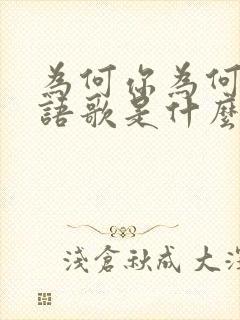 為何你為何
語歌是什麼
淺倉秋成 大深